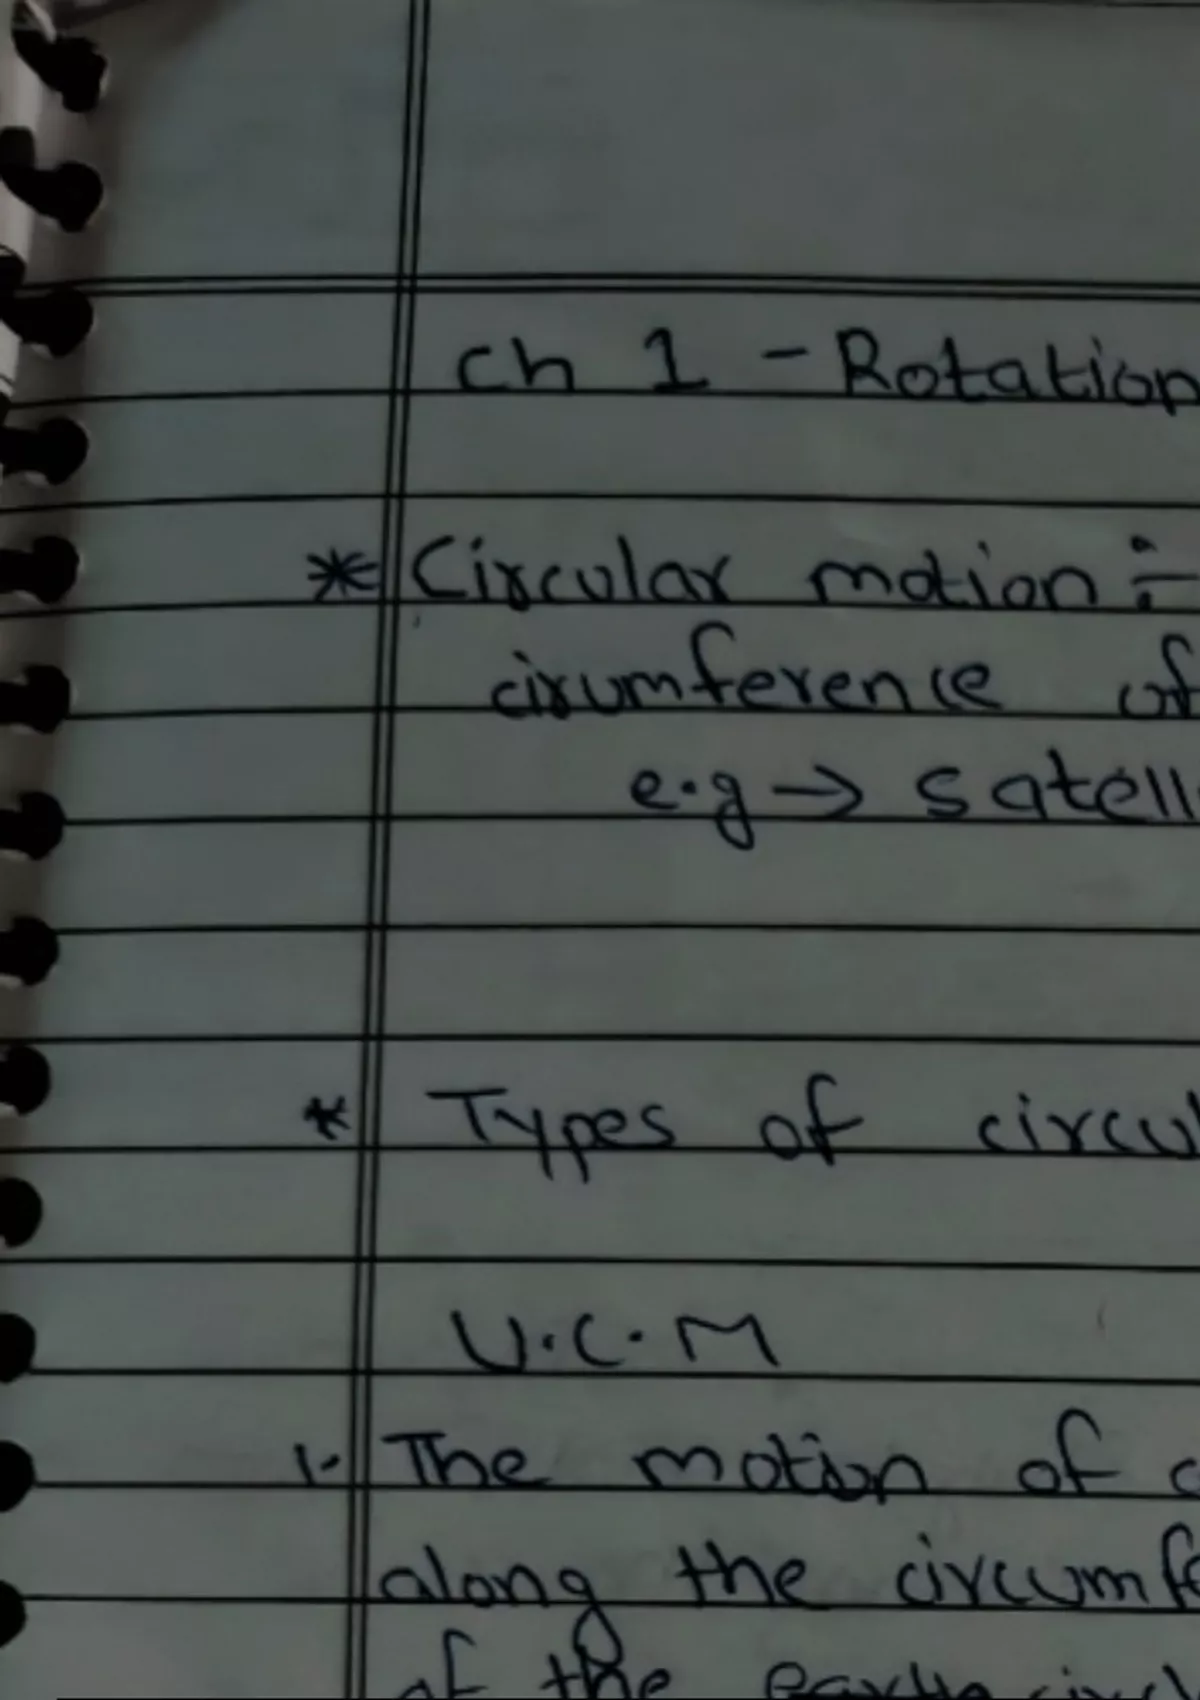 Ch 1 - Rotation
* Circular motion :-
cirumference of
e.g → satell
* Types of circul
U.C.M
1. The motion of
along the circumfe
of the